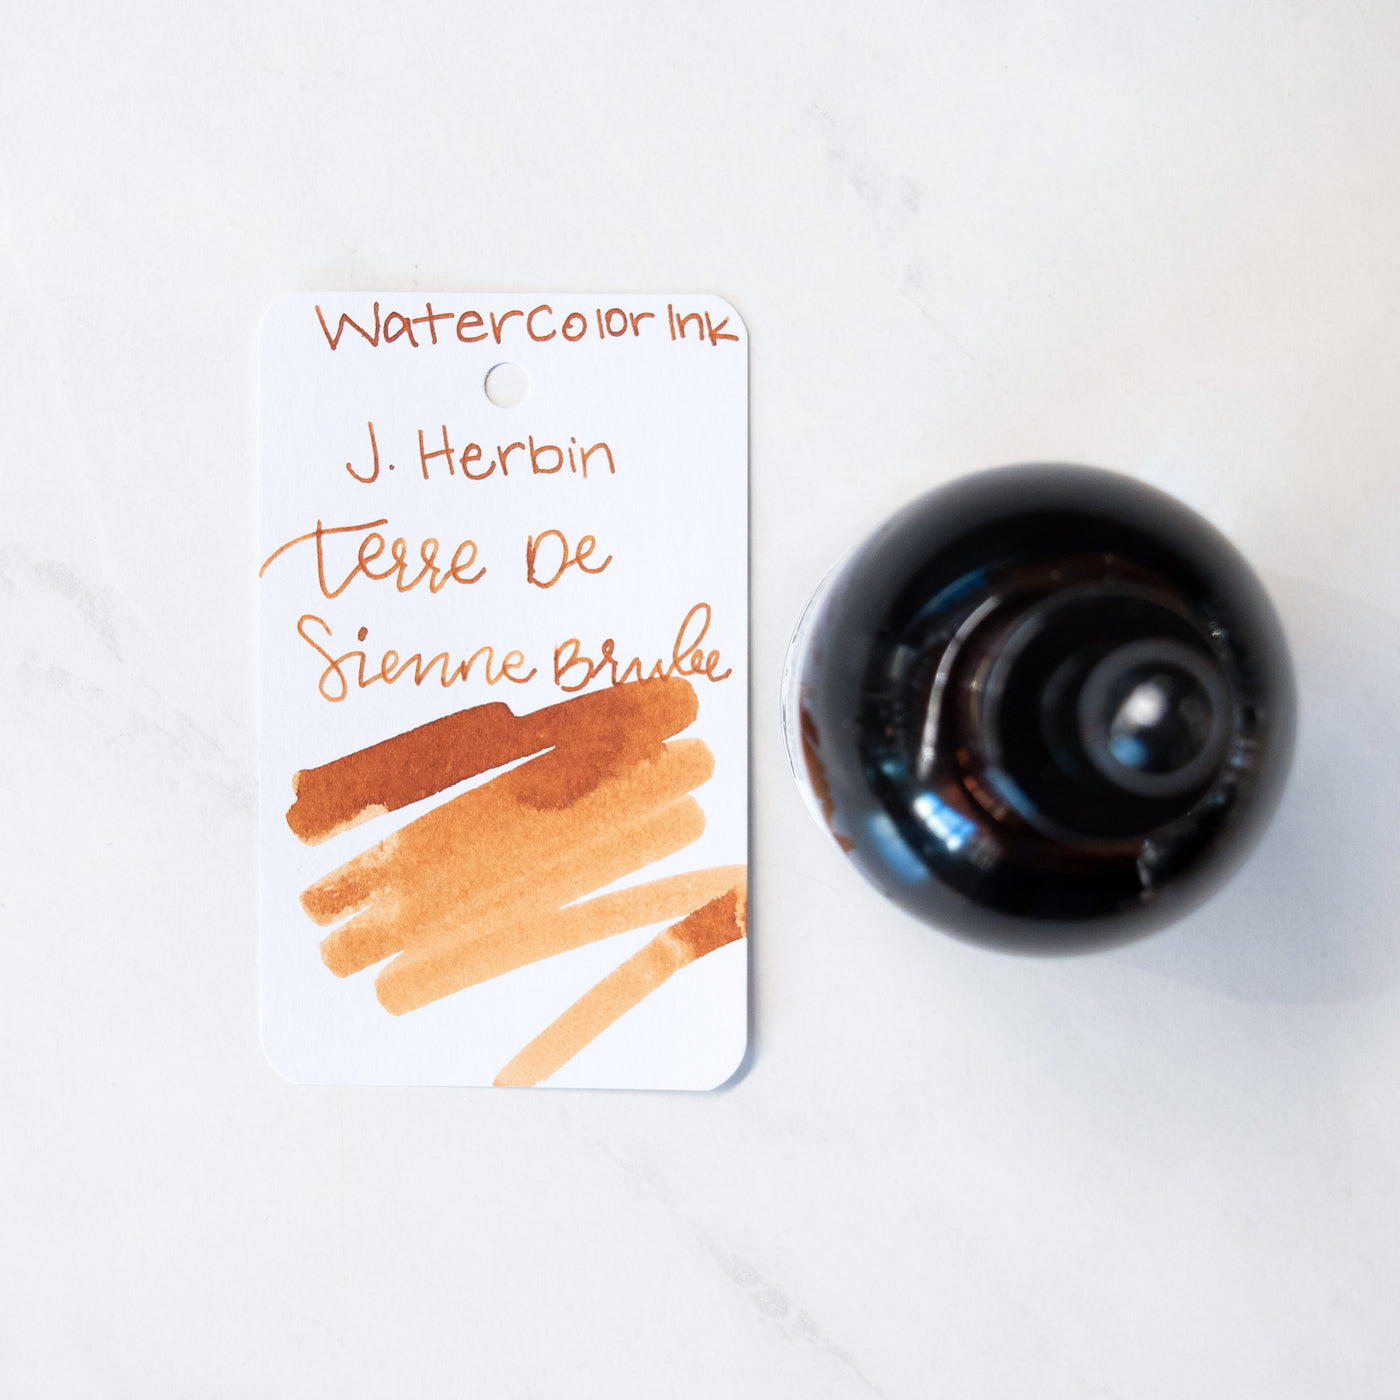 Watercolor Ink
J. Herbin
Terre De
Sienne Brulee